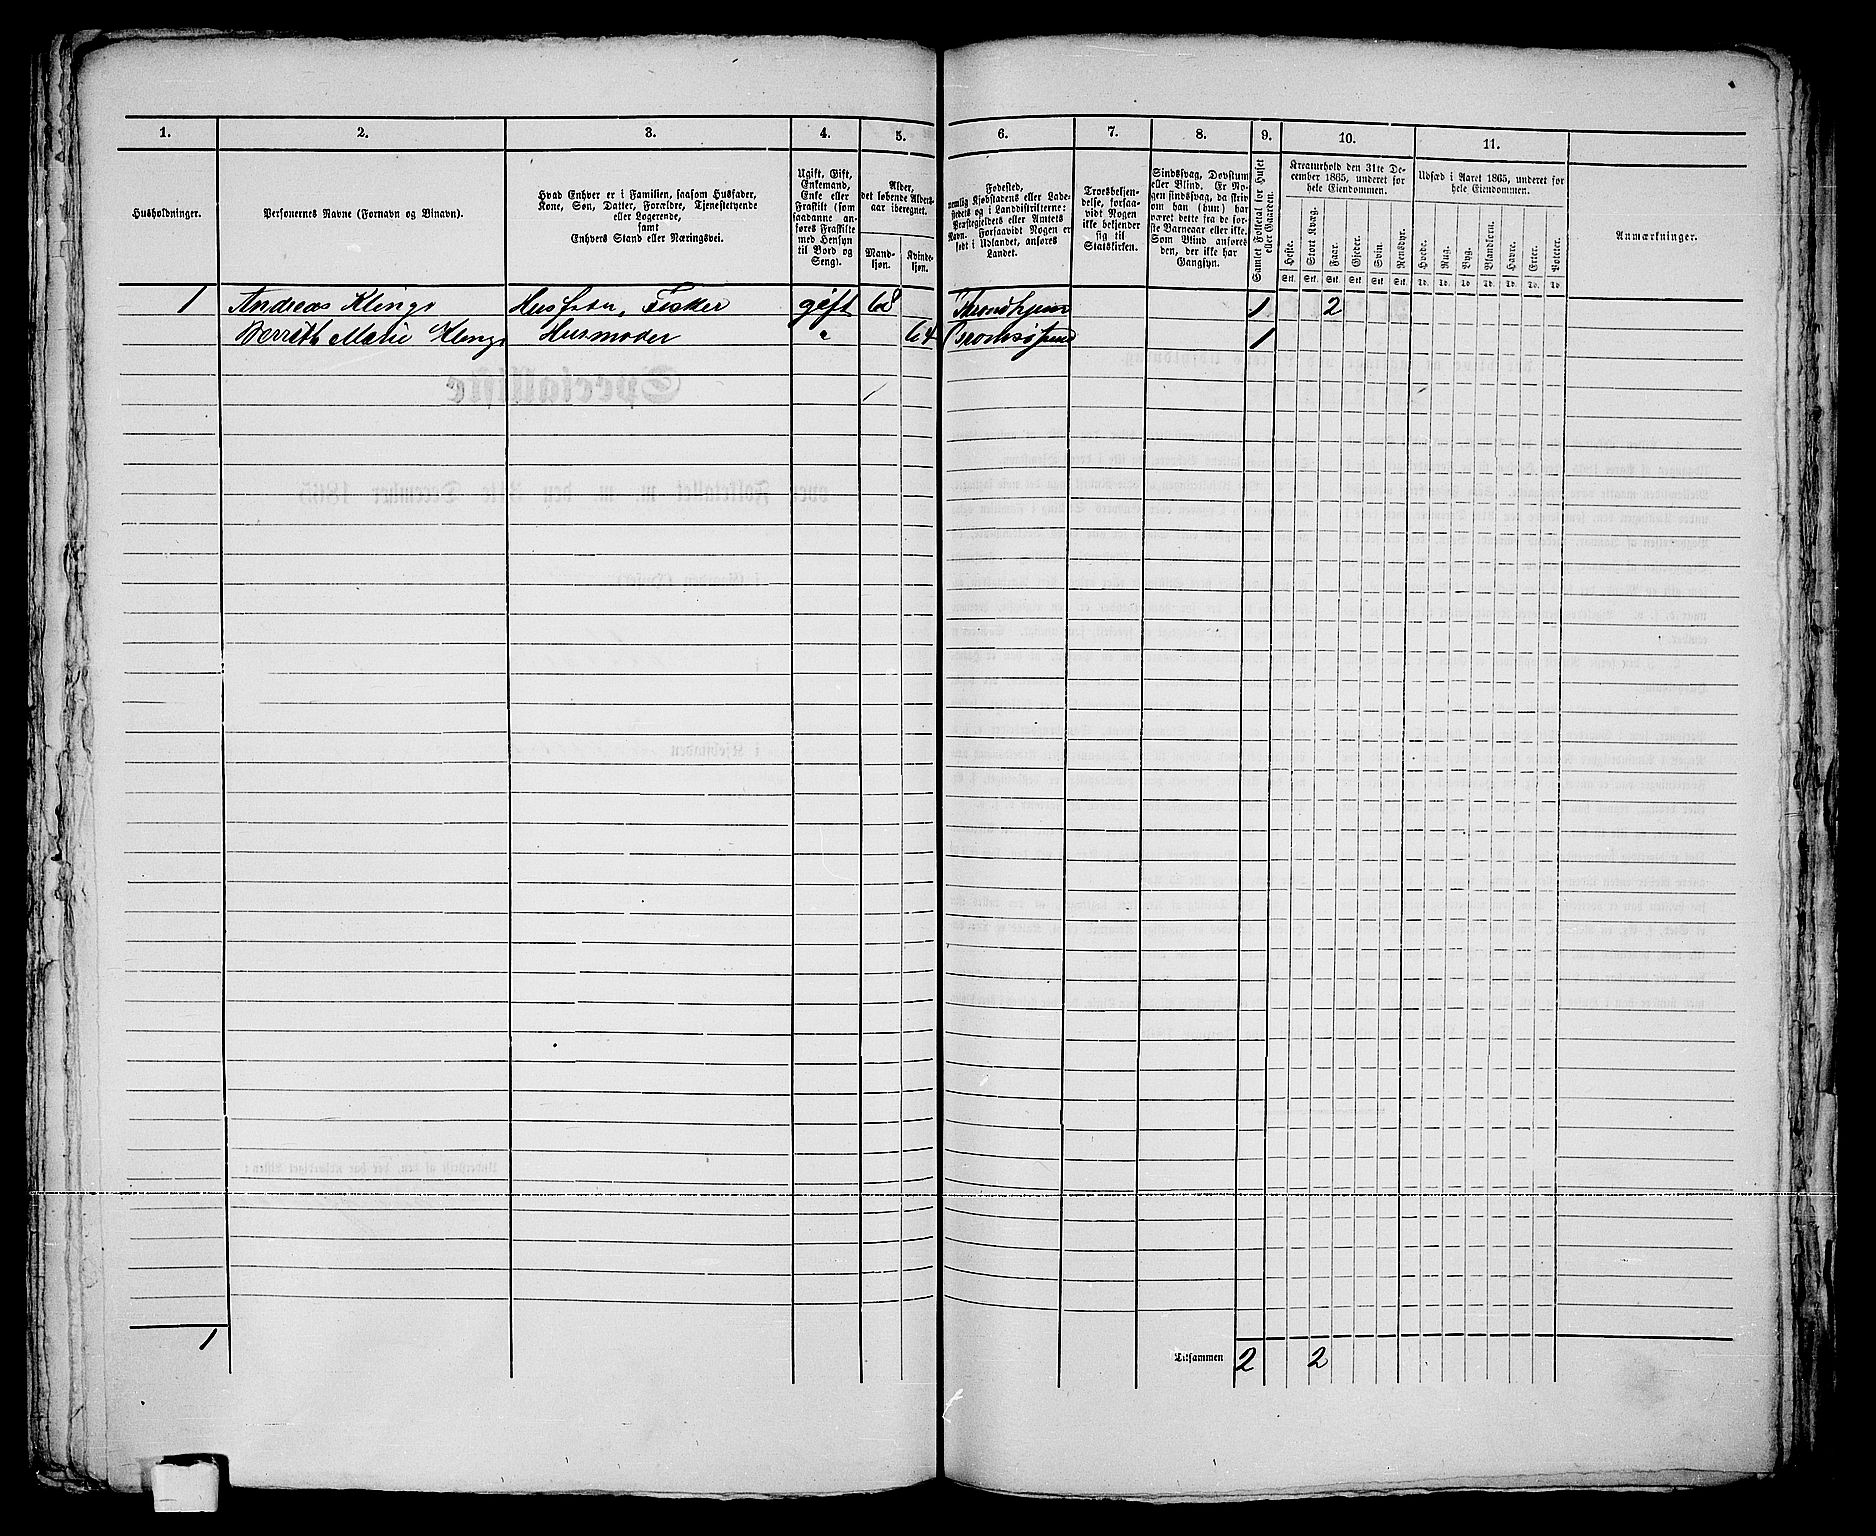 1. 2. 3. 4. 5. 6. 7. 8. 9. 10. 11.
Husholdninger.
Personernes Navne (Fornavn og Binavn).
Hvad Enhver er i Familien, saasom Husfader,
Kone, Søn, Datter, Forældre, Tjenestetyende
eller Logerende,
samt
Enhvers Stand eller Næringsvei.
Ugift, Gift,
Enkemand,
Enke eller
Fraskilt (som
saadanne an-
føres Fraskilte
med Hensyn
til Bord og
Seng).
Alder,
det løbende Alders-
aar iberegnet.
Mand-
kjøn.
Kvinde-
kjøn.
Fødested,
nemlig Kjøbstadens eller Lade-
stedets og i Landdistrikterne:
Præstegjeldets eller Amtets
Navn. Forsaavidt Nogen er
født i Udlandet, anføres
Landet.
Troesbekjen-
delse, forsaa-
vidt Nogen
ikke bekjender
sig til
Statskirken.
Sindssvag, Døvstum
eller Blind. Er No-
gen sindssvag, da skriv
om han (hun) har
været dette fra de før-
ste Barneaar eller ikke.
Som Blind anføres
den, der ikke har
Gangsyn.
Samlet Folketal for Huset
eller Gaarden.
Kreaturhold den 31te De-
cember 1865, underet for
hele Eiendommen.
Heste. Stort Kvæg. Faar. Gjeder. Svin. Rensdyr.
Stk. Stk. Stk. Stk. Stk. Stk.
Udsæd i Aaret 1865, underet for
hele Eiendommen.
Hvede. Rug. Byg. Blandkorn. Havre. Erter. Poteter.
Td. Td. Td. Td. Td. Td. Td.
Anmærkninger.
1 Andreas Klinge Husfader, Fisker gift 68 Throndhjem 1 2
Berrith Marie Klinge Husmoder " 64 Tromsøsund 1
1
Tilsammen 2 2